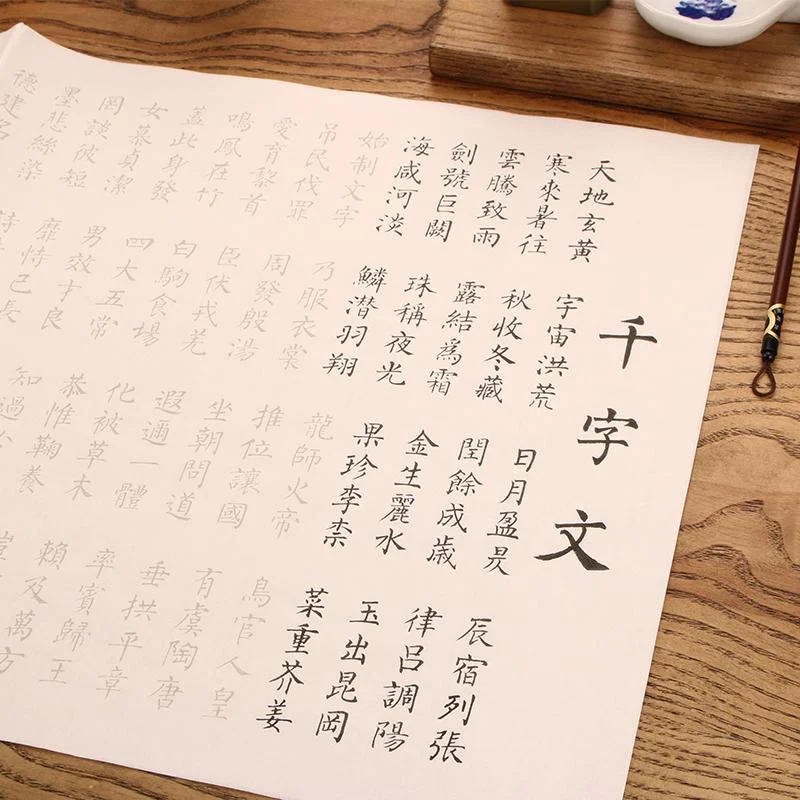 千字文
天地玄黃 宇宙洪荒 日月盈昃 辰宿列張
寒來暑往 秋收冬藏 閏餘成歲 律呂調陽
雲騰致雨 露結為霜 金生麗水 玉出昆岡
劍號巨闕 珠稱夜光 果珍李柰 菜重芥姜
海咸河淡 鱗潛羽翔 龍師火帝 鳥官人皇
始制文字 乃服衣裳 推位讓國 有虞陶唐
吊民伐罪 周發殷湯 坐朝問道 垂拱平章
愛育黎首 臣伏戎羌 遐邇一體 率賓歸王
鳴鳳在竹 白駒食場 化被草木 賴及萬方
蓋此身發 四大五常 恭惟鞠養
女慕貞潔 男效才良 知過
罔談彼短 靡恃己長
墨悲絲染 詩
德建名